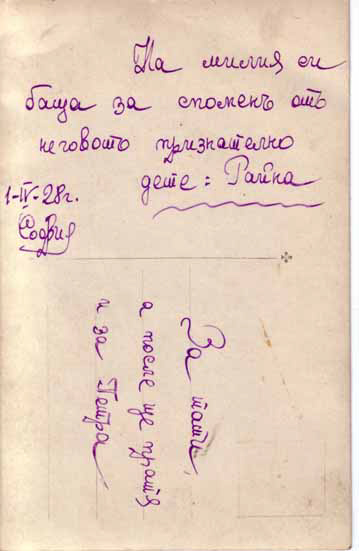 На милия си
баща за споменъ отъ
неговото признателно
дете: Райна
1-IV-28г.
София
За тати,
а после ще пратя
и за Петра